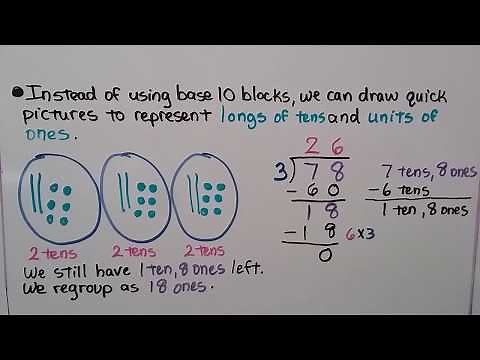 • Instead of using base 10 blocks, we can draw quick
pictures to represent longs of tens and units of
ones.
2 tens 2 tens 2 tens
We still have 1 ten, 8 ones left.
We regroup as 18 ones.
26
3)78
-60
18
-18 6x3
0
7 tens, 8 ones
-6 tens
1 ten, 8 ones